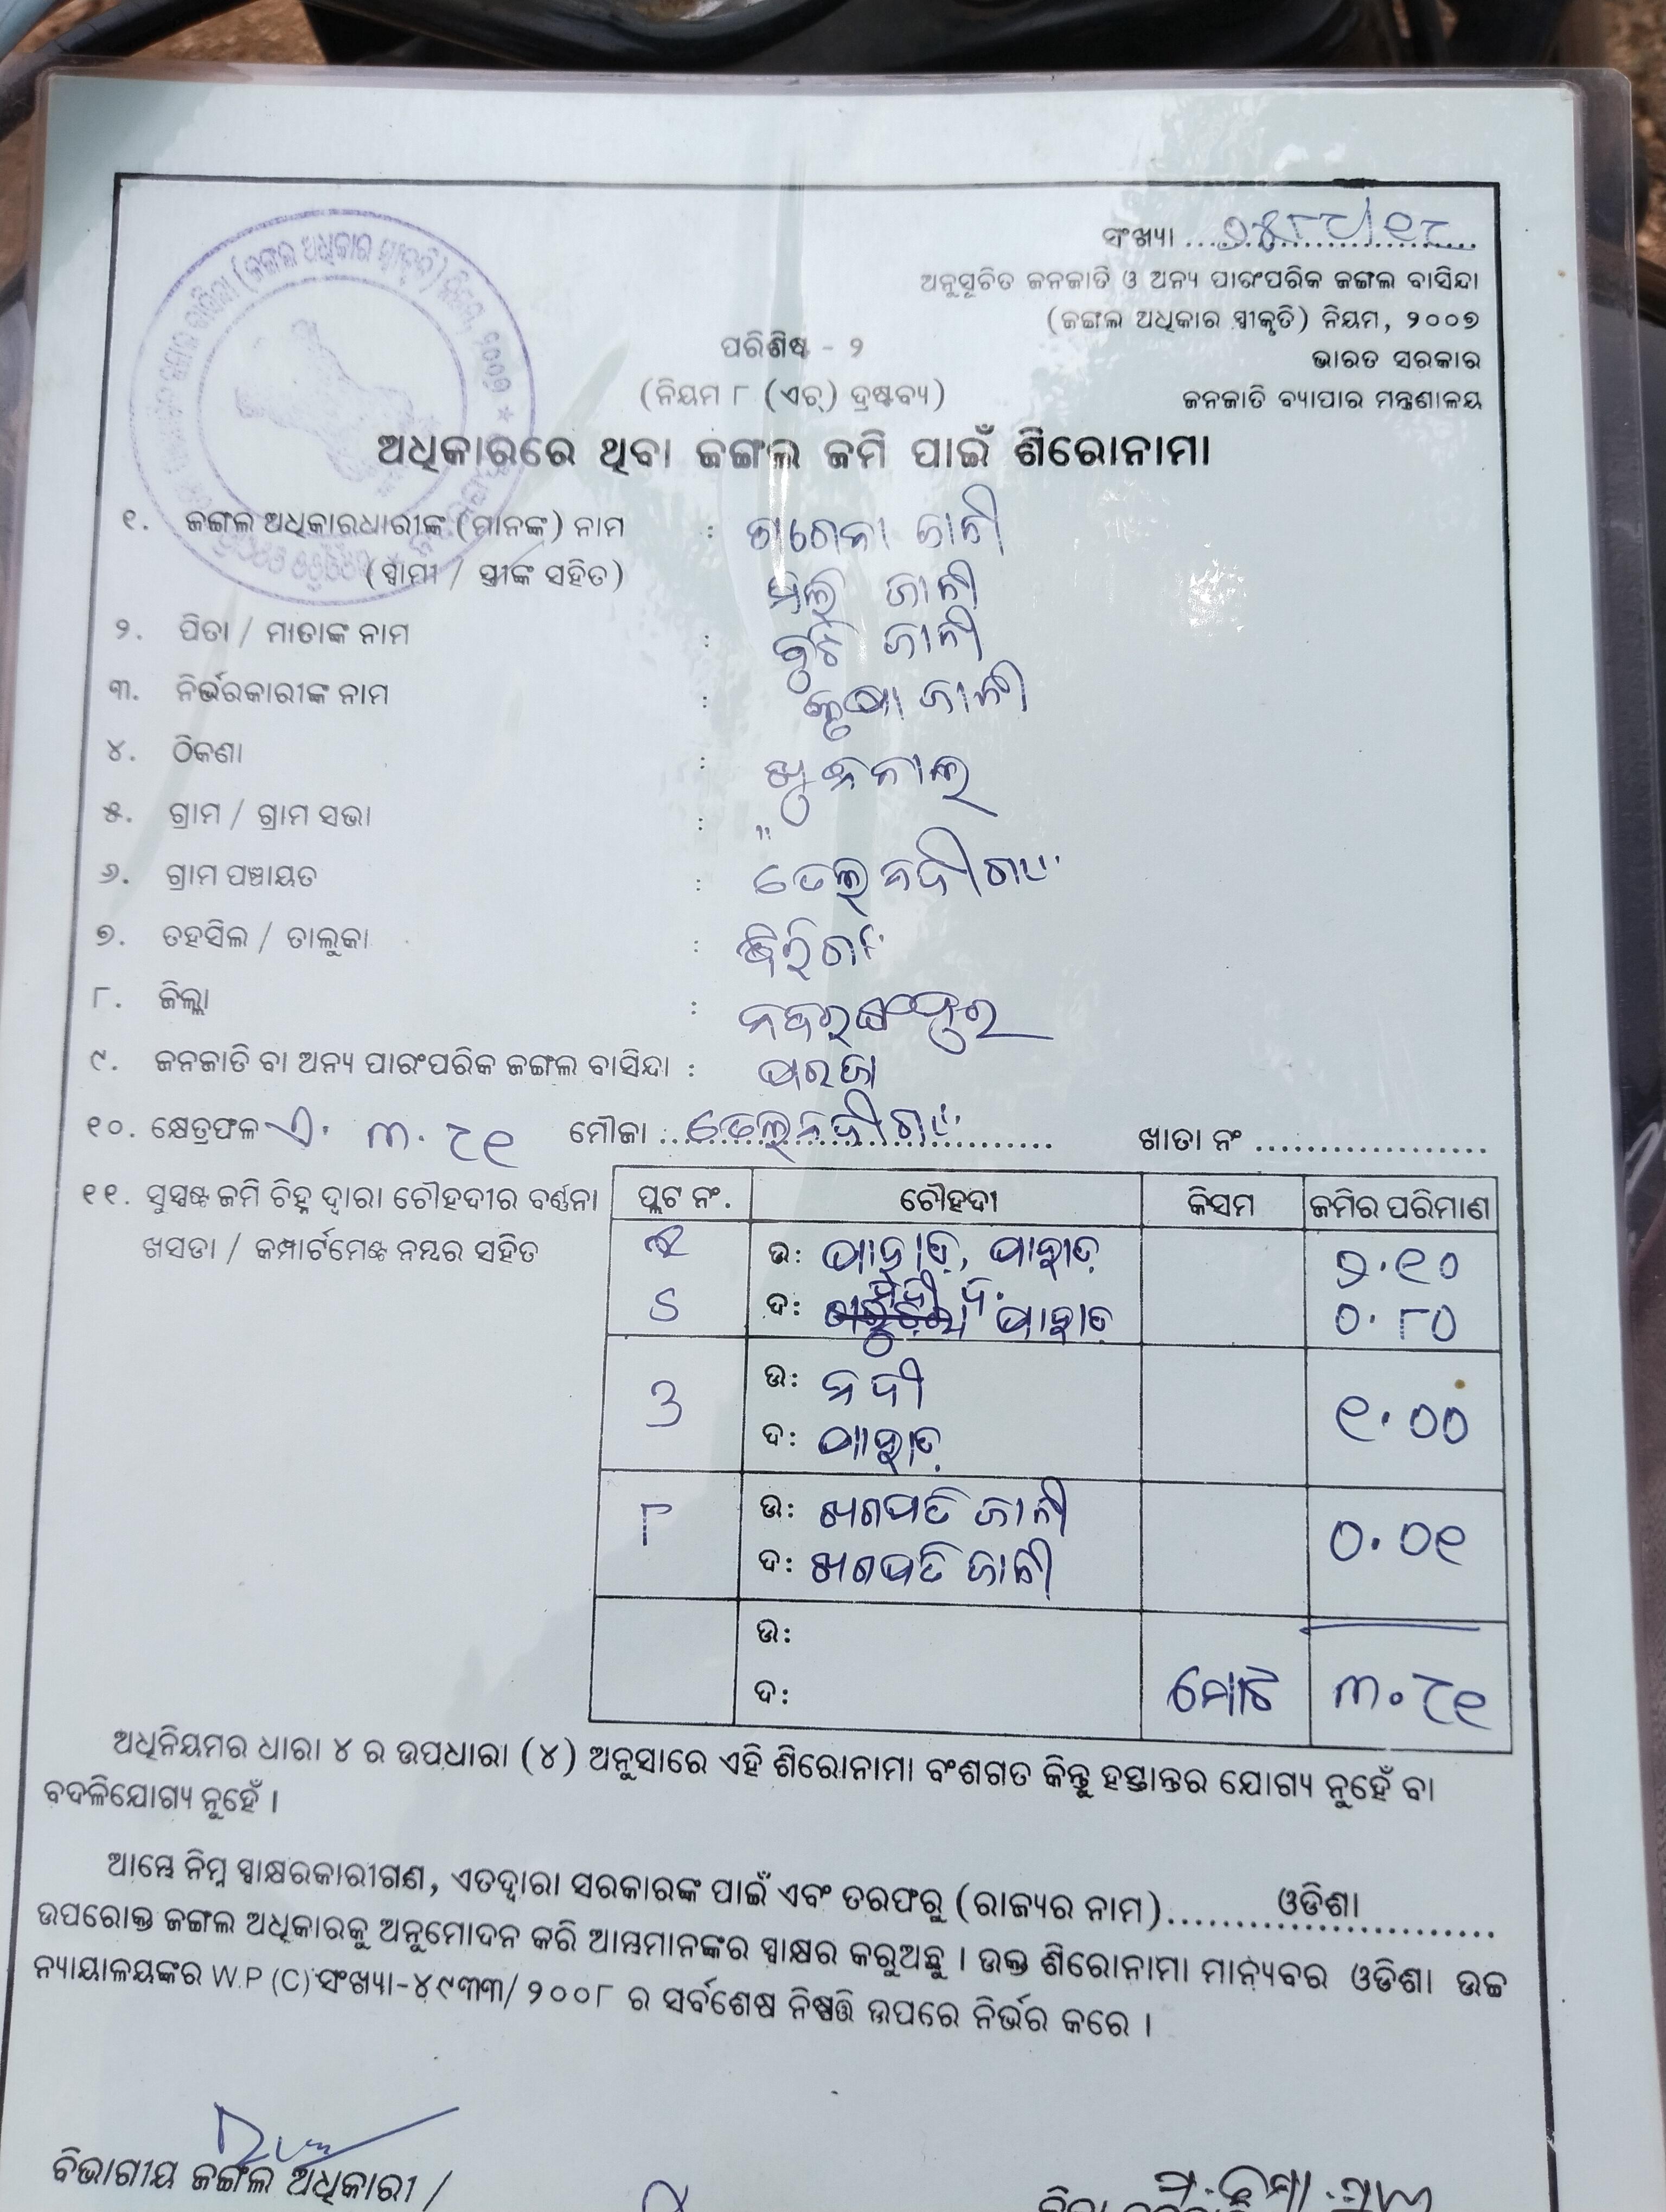 ସଂଖ୍ୟା
ଅନୁସୂଚିତ ଜନଜାତି ଓ ଅନ୍ୟ ପାରଂପରିକ ଜଙ୍ଗଲ ବାସିନ୍ଦା
(ଜଙ୍ଗଲ ଅଧିକାର ସ୍ୱୀକୃତି) ନିୟମ, ୨୦୦୭
ଭାରତ ସରକାର
ଜନଜାତି ବ୍ୟାପାର ମନ୍ତ୍ରଣାଳୟ
ପରିଶିଷ୍ଟ - ୨
(ନିୟମ ୮ (ଏଚ୍) ଦ୍ରଷ୍ଟବ୍ୟ)
ଅଧିକାରରେ ଥିବା ଜଙ୍ଗଲ ଜମି ପାଇଁ ଶିରୋନାମା
୧. ଜଙ୍ଗଲ ଅଧିକାରଧାରୀଙ୍କ (ମାନଙ୍କ) ନାମ : ଜାନୀ
(ସ୍ୱାମୀ / ସ୍ତ୍ରୀଙ୍କ ସହିତ) ଜାନୀ
୨. ପିତା / ମାତାଙ୍କ ନାମ : ଜାନୀ
୩. ନିର୍ଭରକାରୀଙ୍କ ନାମ : ଜାନୀ
୪. ଠିକଣା :
୫. ଗ୍ରାମ / ଗ୍ରାମ ସଭା : "
୬. ଗ୍ରାମ ପଞ୍ଚାୟତ : ତେଲନଦୀଗାଁ
୭. ତହସିଲ / ତାଲୁକା :
୮. ଜିଲ୍ଲା : ନବରଙ୍ଗପୁର
୯. ଜନଜାତି ବା ଅନ୍ୟ ପାରଂପରିକ ଜଙ୍ଗଲ ବାସିନ୍ଦା : ପରଜା
୧୦. କ୍ଷେତ୍ରଫଳ ଏ. ୩.୯୧ ମୌଜା ତେଲନଦୀଗାଁ ଖାତା ନଂ ..................
୧୧. ସୁସ୍ପଷ୍ଟ ଜମି ଚିହ୍ନ ଦ୍ୱାରା ଚୌହଦୀର ବର୍ଣ୍ଣନା
ଖସଡା / କମ୍ପାର୍ଟମେଣ୍ଟ ନମ୍ବର ସହିତ
ପ୍ଲଟ ନଂ. ଚୌହଦୀ କିସମ ଜମିର ପରିମାଣ
ଉ: ପାହାଡ଼, ପାହାଡ଼ ୨.୧୦
ଦ: ପାହାଡ଼ ୦.୮୦
ଉ: ନଦୀ
ଦ: ପାହାଡ଼ ୧.୦୦
୮ ଉ: ଖଗପତି ଜାନୀ
ଦ: ଖଗପତି ଜାନୀ ୦.୦୧
ଉ:
ଦ: ମୋଟ ୩.୯୧
ଅଧିନିୟମର ଧାରା ୪ ର ଉପଧାରା (୪) ଅନୁସାରେ ଏହି ଶିରୋନାମା ବଂଶଗତ କିନ୍ତୁ ହସ୍ତାନ୍ତର ଯୋଗ୍ୟ ନୁହେଁ ବା
ବଦଳିଯୋଗ୍ୟ ନୁହେଁ ।
ଆମ୍ଭେ ନିମ୍ନ ସ୍ୱାକ୍ଷରକାରୀଗଣ, ଏତଦ୍ଦ୍ୱାରା ସରକାରଙ୍କ ପାଇଁ ଏବଂ ତରଫରୁ (ରାଜ୍ୟର ନାମ) ଓଡିଶା
ଉପରୋକ୍ତ ଜଙ୍ଗଲ ଅଧିକାରକୁ ଅନୁମୋଦନ କରି ଆମ୍ଭମାନଙ୍କର ସ୍ୱାକ୍ଷର କରୁଅଛୁ । ଉକ୍ତ ଶିରୋନାମା ମାନ୍ୟବର ଓଡିଶା ଉଚ୍ଚ
ନ୍ୟାୟାଳୟଙ୍କର W.P (C) ସଂଖ୍ୟା-୪୯୩୩/ ୨୦୦୮ ର ସର୍ବଶେଷ ନିଷ୍ପତ୍ତି ଉପରେ ନିର୍ଭର କରେ ।
ବିଭାଗୀୟ ଜଙ୍ଗଲ ଅଧିକାରୀ /